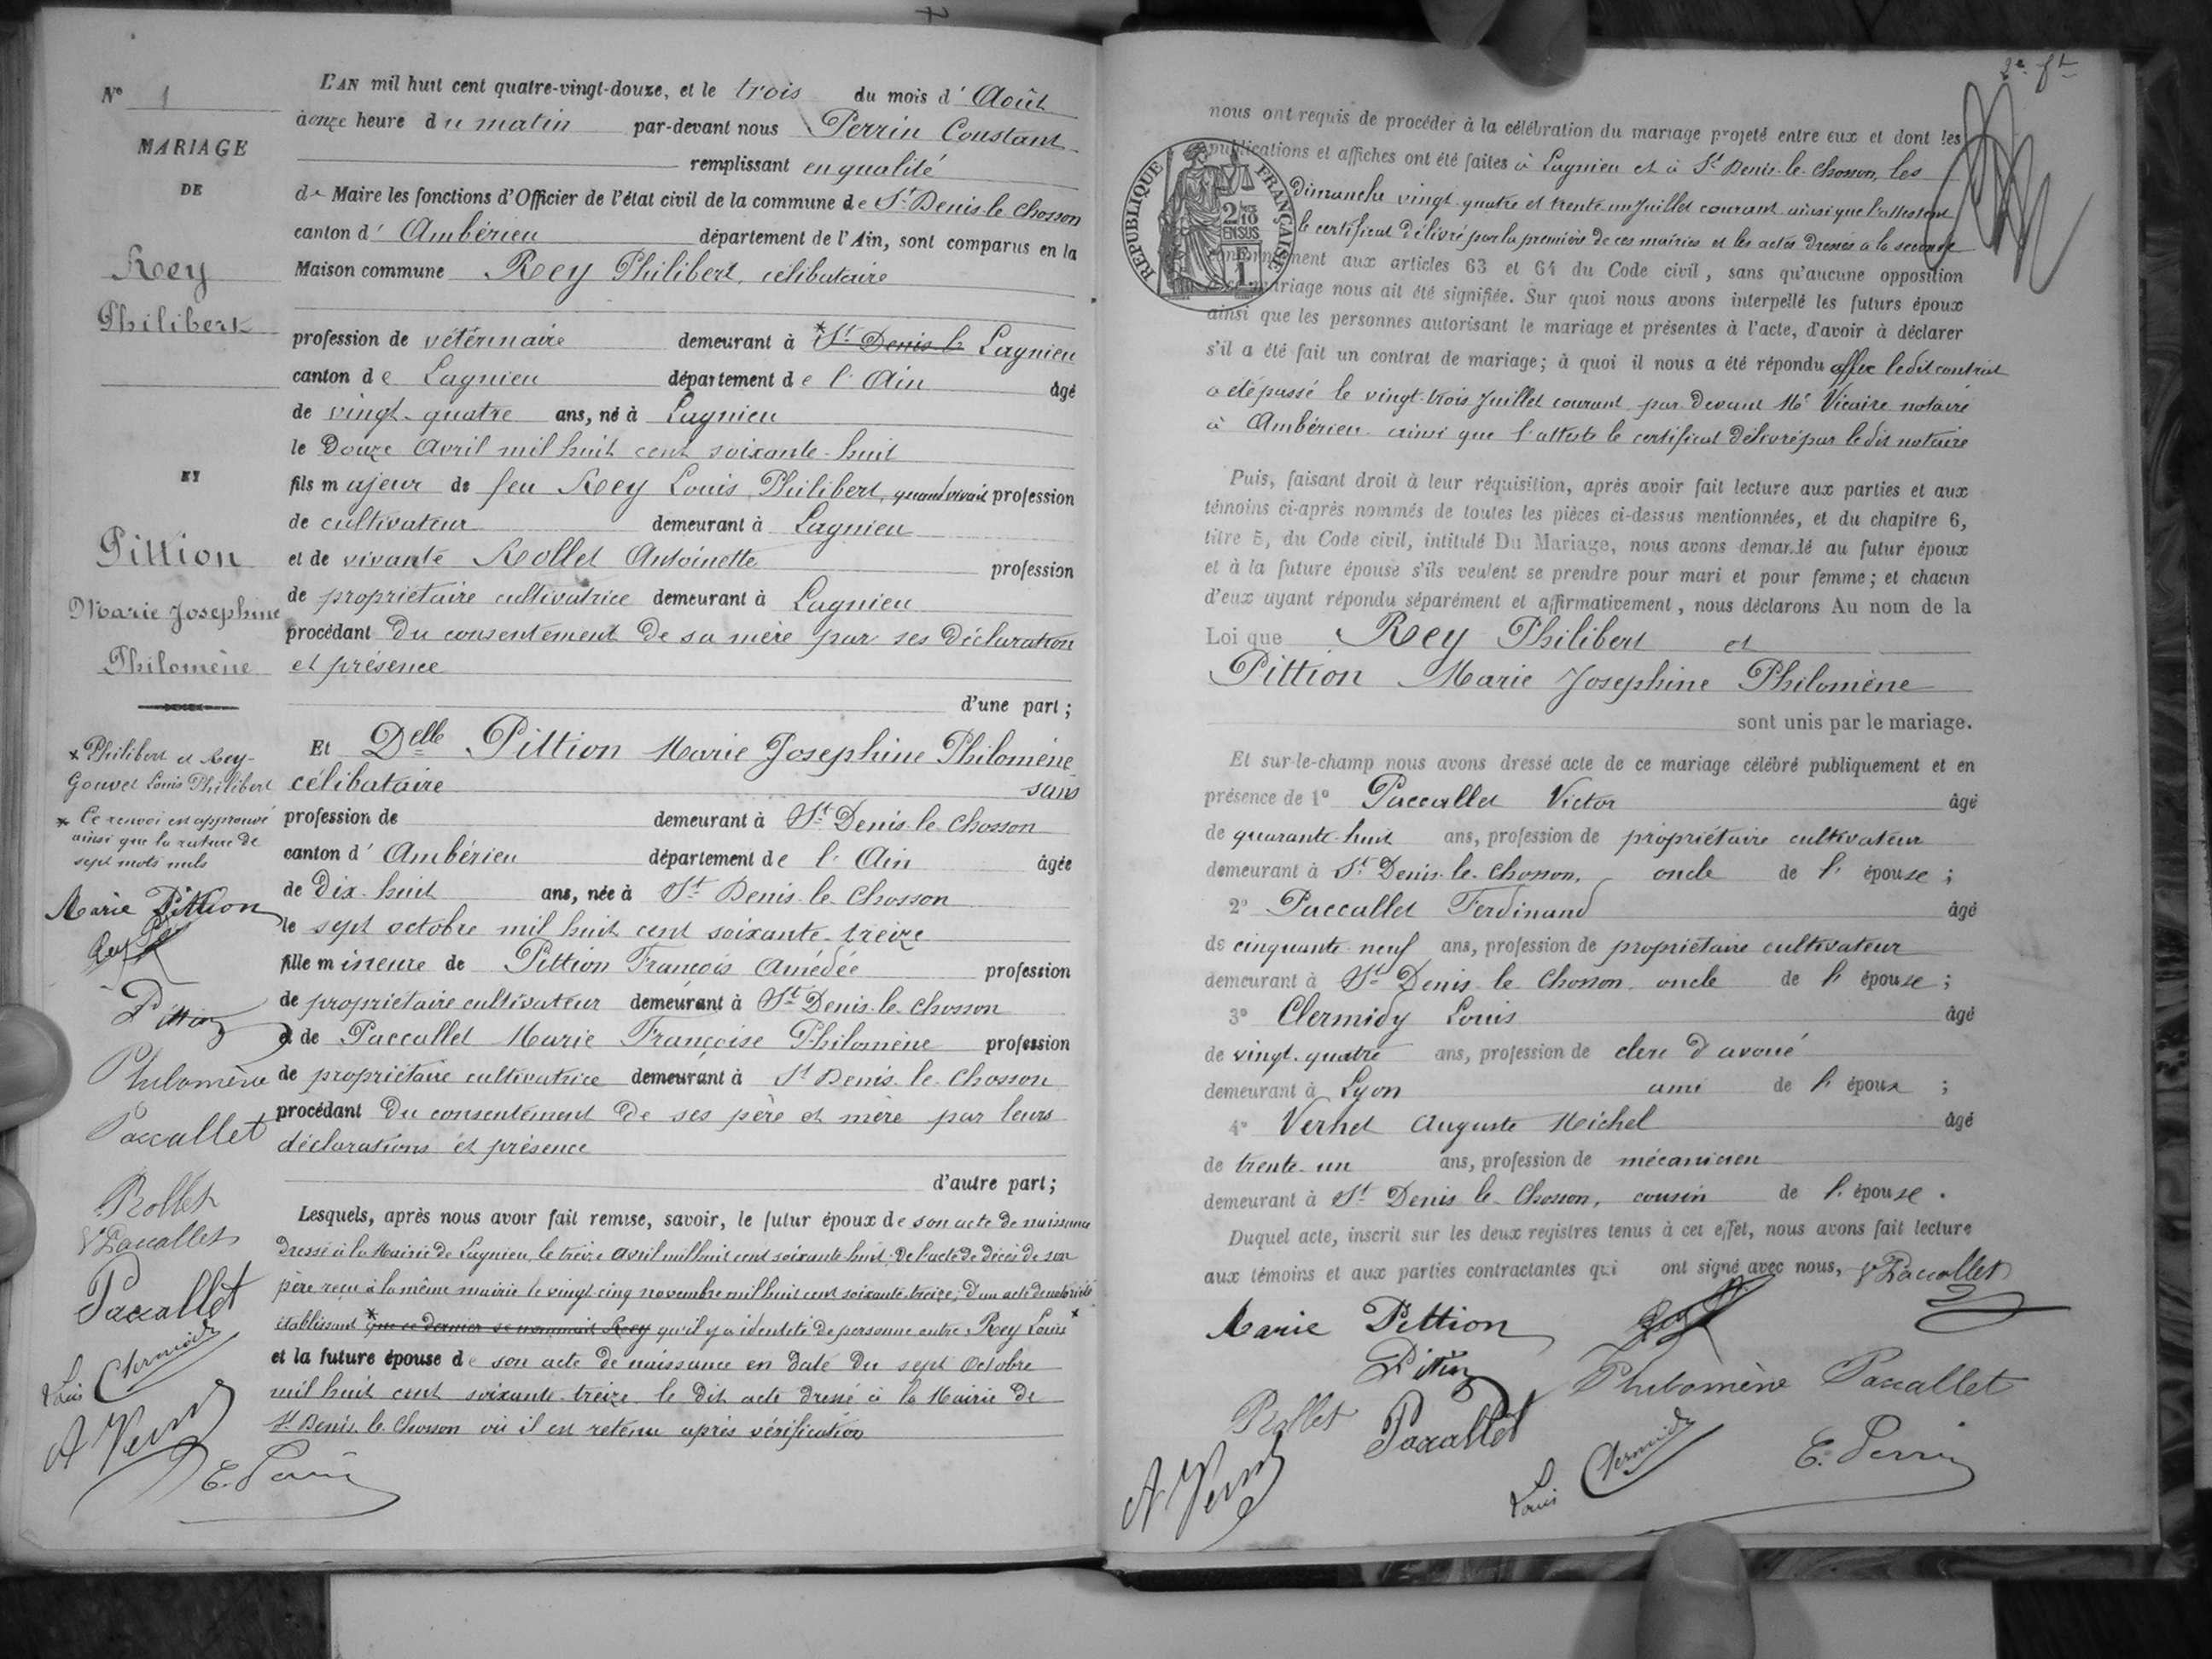 N° 1
MARIAGE
DE
Rey
Philibert
ET
Pittion
Marie Josephine
Philomène
* Philibert et Rey-
Gouvet Louis Philibert
* Ce renvoi est approuvé
ainsi que la rature de
sept mots nuls
Marie Pittion
Rey
Pittion
Philomène
Paccallet
Rollet
V Paccallet
Paccallet
Louis Clermidy
A Vernet
E. Perrin
L'AN mil huit cent quatre-vingt-douze, et le trois du mois d' Août
à onze heure du matin par-devant nous Perrin Constant
remplissant en qualité
de Maire les fonctions d'Officier de l'état civil de la commune de St Denis-le-Chosson
canton d' Ambérieu département de l'Ain, sont comparus en la
Maison commune Rey Philibert, célibataire
profession de vétérinaire demeurant à * St Denis-le Lagnieu
canton de Lagnieu département de l'Ain âgé
de vingt-quatre ans, né à Lagnieu
le Douze Avril mil huit cent soixante-huit
fils majeur de feu Rey Louis Philibert, quand vivait profession
de cultivateur demeurant à Lagnieu
et de vivante Rollet Antoinette profession
de propriétaire cultivatrice demeurant à Lagnieu
procédant du consentement de sa mère par ses déclaration
et présence
d'une part;
Et Delle Pittion Marie Josephine Philomène
célibataire sans
profession de demeurant à St Denis-le-Chosson
canton d' Ambérieu département de l'Ain âgée
de Dix-huit ans, née à St Denis-le-Chosson
le sept octobre mil huit cent soixante-treize
fille mineure de Pittion François Amédée profession
de propriétaire cultivateur demeurant à St Denis-le-Chosson
et de Paccallet Marie Françoise Philomène profession
de propriétaire cultivatrice demeurant à St Denis-le-Chosson
procédant du consentement de ses père et mère par leurs
déclarations et présence
d'autre part;
Lesquels, après nous avoir fait remise, savoir, le futur époux de son acte de naissance
dressé à la Mairie de Lagnieu, le treize avril mil huit cent soixante huit; De l'acte de décès de son
père reçu à la même mairie le vingt-cinq novembre mil huit cent soixante-treize; d'un acte de notoriété
établissant * que ce dernier se nommait Rey qu'il y a identité de personne entre Rey Louis *
et la future épouse de son acte de naissance en date du sept Octobre
mil huit cent soixante-treize le dit acte dressé à la Mairie de
St Denis-le-Chosson où il est retenu après vérification
2e ft
nous ont requis de procéder à la célébration du mariage projeté entre eux et dont les
publications et affiches ont été faites à Lagnieu et à St Denis-le-Chosson, les
Dimanche vingt-quatre et trente-un Juillet courant ainsi que l'attestent
le certificat délivré par la première de ces mairies et les actes dressés à la seconde
conformément aux articles 63 et 64 du Code civil, sans qu'aucune opposition
mariage nous ait été signifiée. Sur quoi nous avons interpellé les futurs époux
ainsi que les personnes autorisant le mariage et présentes à l'acte, d'avoir à déclarer
s'il a été fait un contrat de mariage; à quoi il nous a été répondu le dit contrat
a été passé le vingt-trois Juillet courant par devant Me Vicaire notaire
à Ambérieu ainsi que l'atteste le certificat délivré par le dit notaire
RÉPUBLIQUE FRANÇAISE
2/10
EN SUS
1
Puis, faisant droit à leur réquisition, après avoir fait lecture aux parties et aux
témoins ci-après nommés de toutes les pièces ci-dessus mentionnées, et du chapitre 6,
titre 5, du Code civil, intitulé Du Mariage, nous avons demandé au futur époux
et à la future épouse s'ils veulent se prendre pour mari et pour femme; et chacun
d'eux ayant répondu séparément et affirmativement, nous déclarons Au nom de la
Loi que Rey Philibert et
Pittion Marie Josephine Philomène
sont unis par le mariage.
Et sur-le-champ nous avons dressé acte de ce mariage célébré publiquement et en
présence de 1° Paccallet Victor âgé
de quarante-huit ans, profession de propriétaire cultivateur
demeurant à St Denis-le-Chosson, oncle de l'épouse;
2° Paccallet Ferdinand âgé
de cinquante-neuf ans, profession de propriétaire cultivateur
demeurant à St Denis-le-Chosson oncle de l'épouse;
3° Clermidy Louis âgé
de vingt-quatre ans, profession de clerc d'avoué
demeurant à Lyon ami de l'époux;
4° Vernet Auguste Michel âgé
de trente-un ans, profession de mécanicien
demeurant à St Denis-le-Chosson, cousin de l'épouse.
Duquel acte, inscrit sur les deux registres tenus à cet effet, nous avons fait lecture
aux témoins et aux parties contractantes qui ont signé avec nous, V Paccallet
Marie Pittion Rey
Pittion Philomène Paccallet
Rollet Paccallet
A Vernet Louis Clermidy E. Perrin